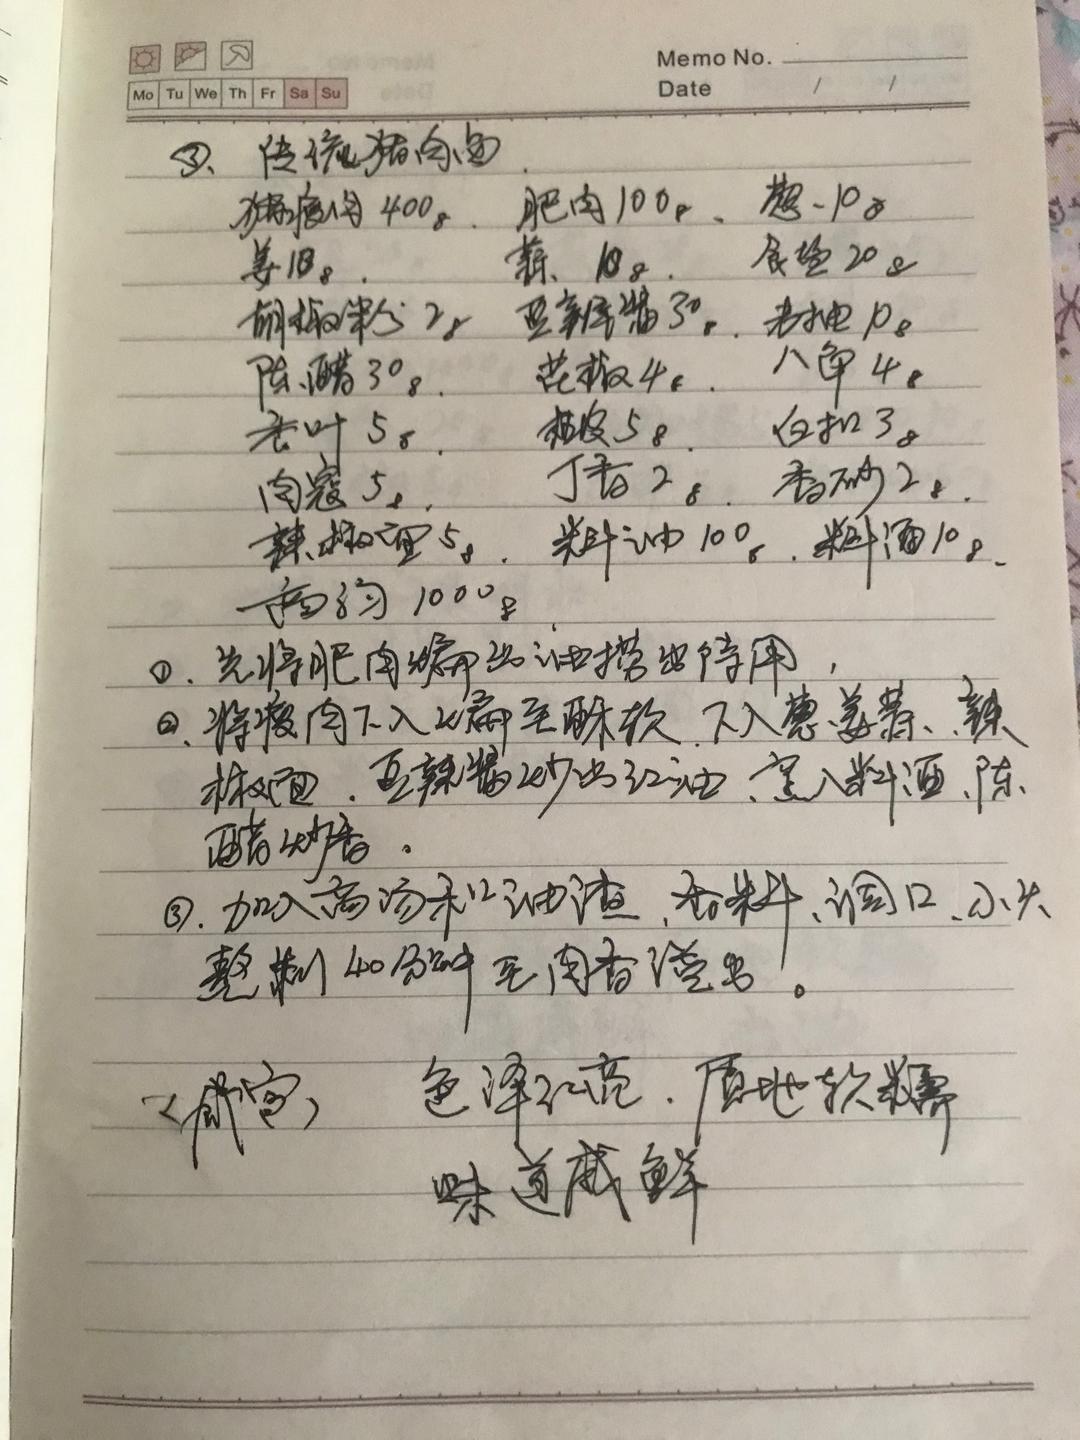 Memo No.
Mo Tu We Th Fr Sa Su
Date / /
③、传统猪肉卤
猪瘦肉400g、 肥肉100g、 葱、10g
姜10g、 蒜、10g、 食盐20g
胡椒粉2g 豆瓣酱30g、 老抽10g
陈醋30g、 花椒4g、 八角4g
香叶5g、 桂皮5g、 白扣3g
肉寇5g、 丁香2g、 香砂2g、
辣椒面5g、 料油100g、料酒10g、
高汤1000g
①、先将肥肉煸出油捞出待用，
②、将瘦肉下入煸至酥软、下入葱、姜蒜、辣
椒面、豆辣酱炒出红油、烹入料酒、陈
醋炒香。
③、加入高汤和油渣、香料、调口、小火
熬制40分钟至肉香溢出。
色泽红亮、质地软糯
味道咸鲜